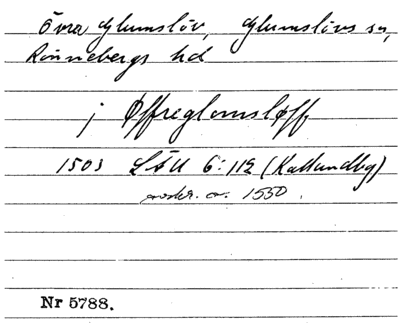 Övra Glumslöv, Glumslövs sn,
Rönnebergs hd
j Øffreglomsløff
1503 LÄU 6:112 (Kallundbg)
avskr. o. 1550.
Nr 5788.